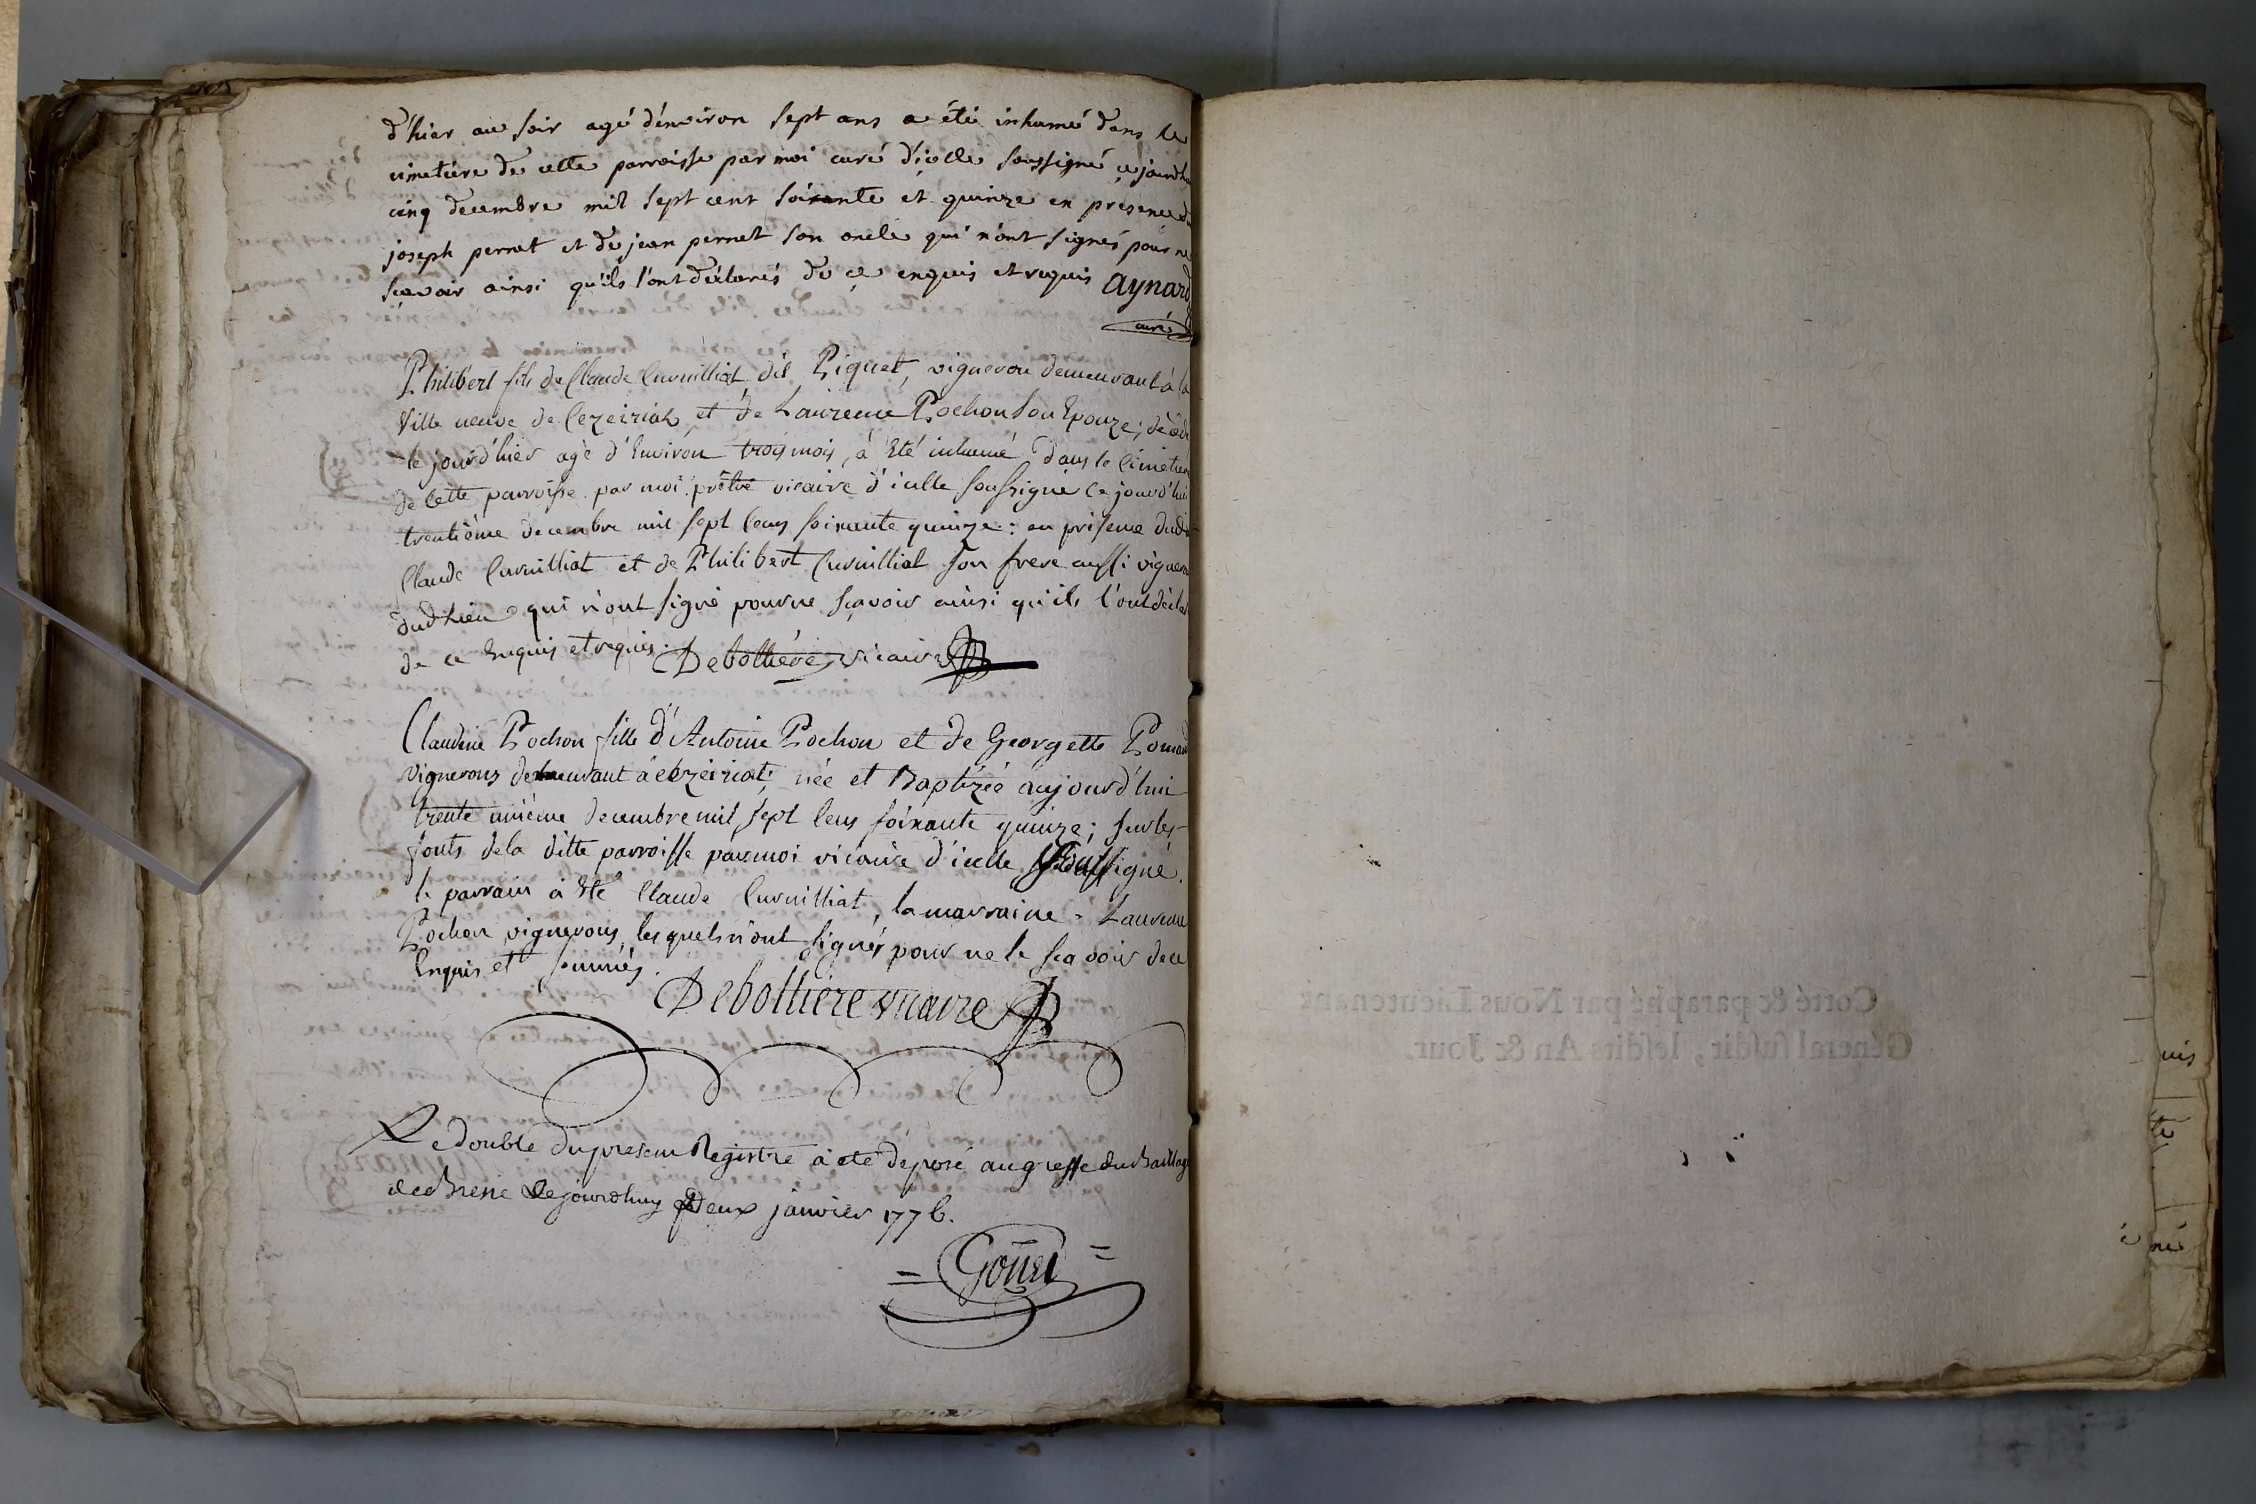 d'hier au soir agé d'environ sept ans a été inhumé dans le
cimetiere de cette parroisse par moi curé d'icelle soussigné cejourdhui
cinq decembre mil sept cent soixante et quinze en présence de
joseph pernet et de jean pernet son oncle qui n'ont signés pour ne
scavoir ainsi qu'ils l'ont déclarés de ce enquis et requis Aynard
curé
Philibert fils de Claude Curnilliat dit Piquet, vigneron demeurant à la
Ville neuve de Cezeiriat, et de Laurence Pochon son Epouze; décédé
le jour d'hier agé d'Environ trois mois, à Eté inhumé dans le Cimetiere
de Cette parroisse par moi prêtre vicaire d'icelle soussigné Ce jourd'hui
trentième decembre mil sept Cens soixante quinze: en présence dudit
Claude Curnilliat et de Philibert Curnilliat son frere aussi vigneron
dudit lieu qui n'ont signé pour ne sçavoir ainsi qu'ils l'ont déclaré
de ce Enquis et requis. Debolliere vicaire
Claudine Pochon fille d'Antoine Pochon et de Georgette
Vignerons demeurant à cezeiriat, née et Baptizée aujourd'hui
trente unième decembre mil sept Cens soixante quinze; sur les
fonts de la ditte parroisse par moi vicaire d'icelle soussigné.
le parrain à Eté Claude Curnilliat, la marraine Laurence
Pochon, vignerons, lesquels n'ont signés pour ne le scavoir de ce
Enquis et sommés.
Debolliere vicaire
Le double du present Registre a eté déposé au greffe du Bailliage
de Bresse Cejourdhuy Deux janvier 1776.
= Gonet =
Cotté & paraphé par Nous Lieutenant
Général susdit, lesdits An & Jour.